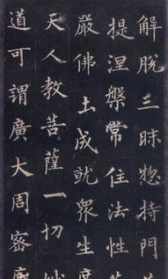 解脫三昧惣持門
提涅槃常住法性
嚴佛土成就眾生
天人教菩薩一切
道可謂廣大周密